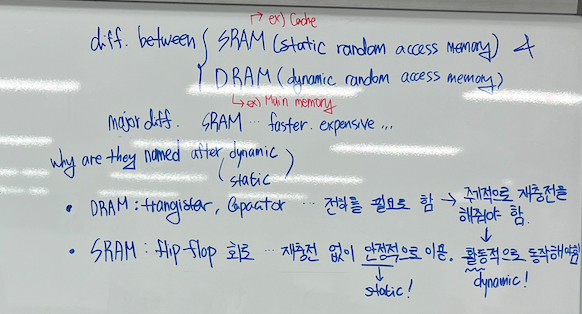 → ex) Cache
diff. between SRAM (static random access memory) &
DRAM (dynamic random access memory)
→ ex) Main memory
major diff. SRAM ... faster. expensive ...
why are they named after (dynamic
static)
• DRAM : trangister, Capacitor ... 전하를 필요로 함 → 주기적으로 재충전을
해줘야 함.
↓
• SRAM : flip-flop 회로 ... 재충전 없이 안정적으로 이용. 활동적으로 동작해야함
↓ static! ↓ dynamic!